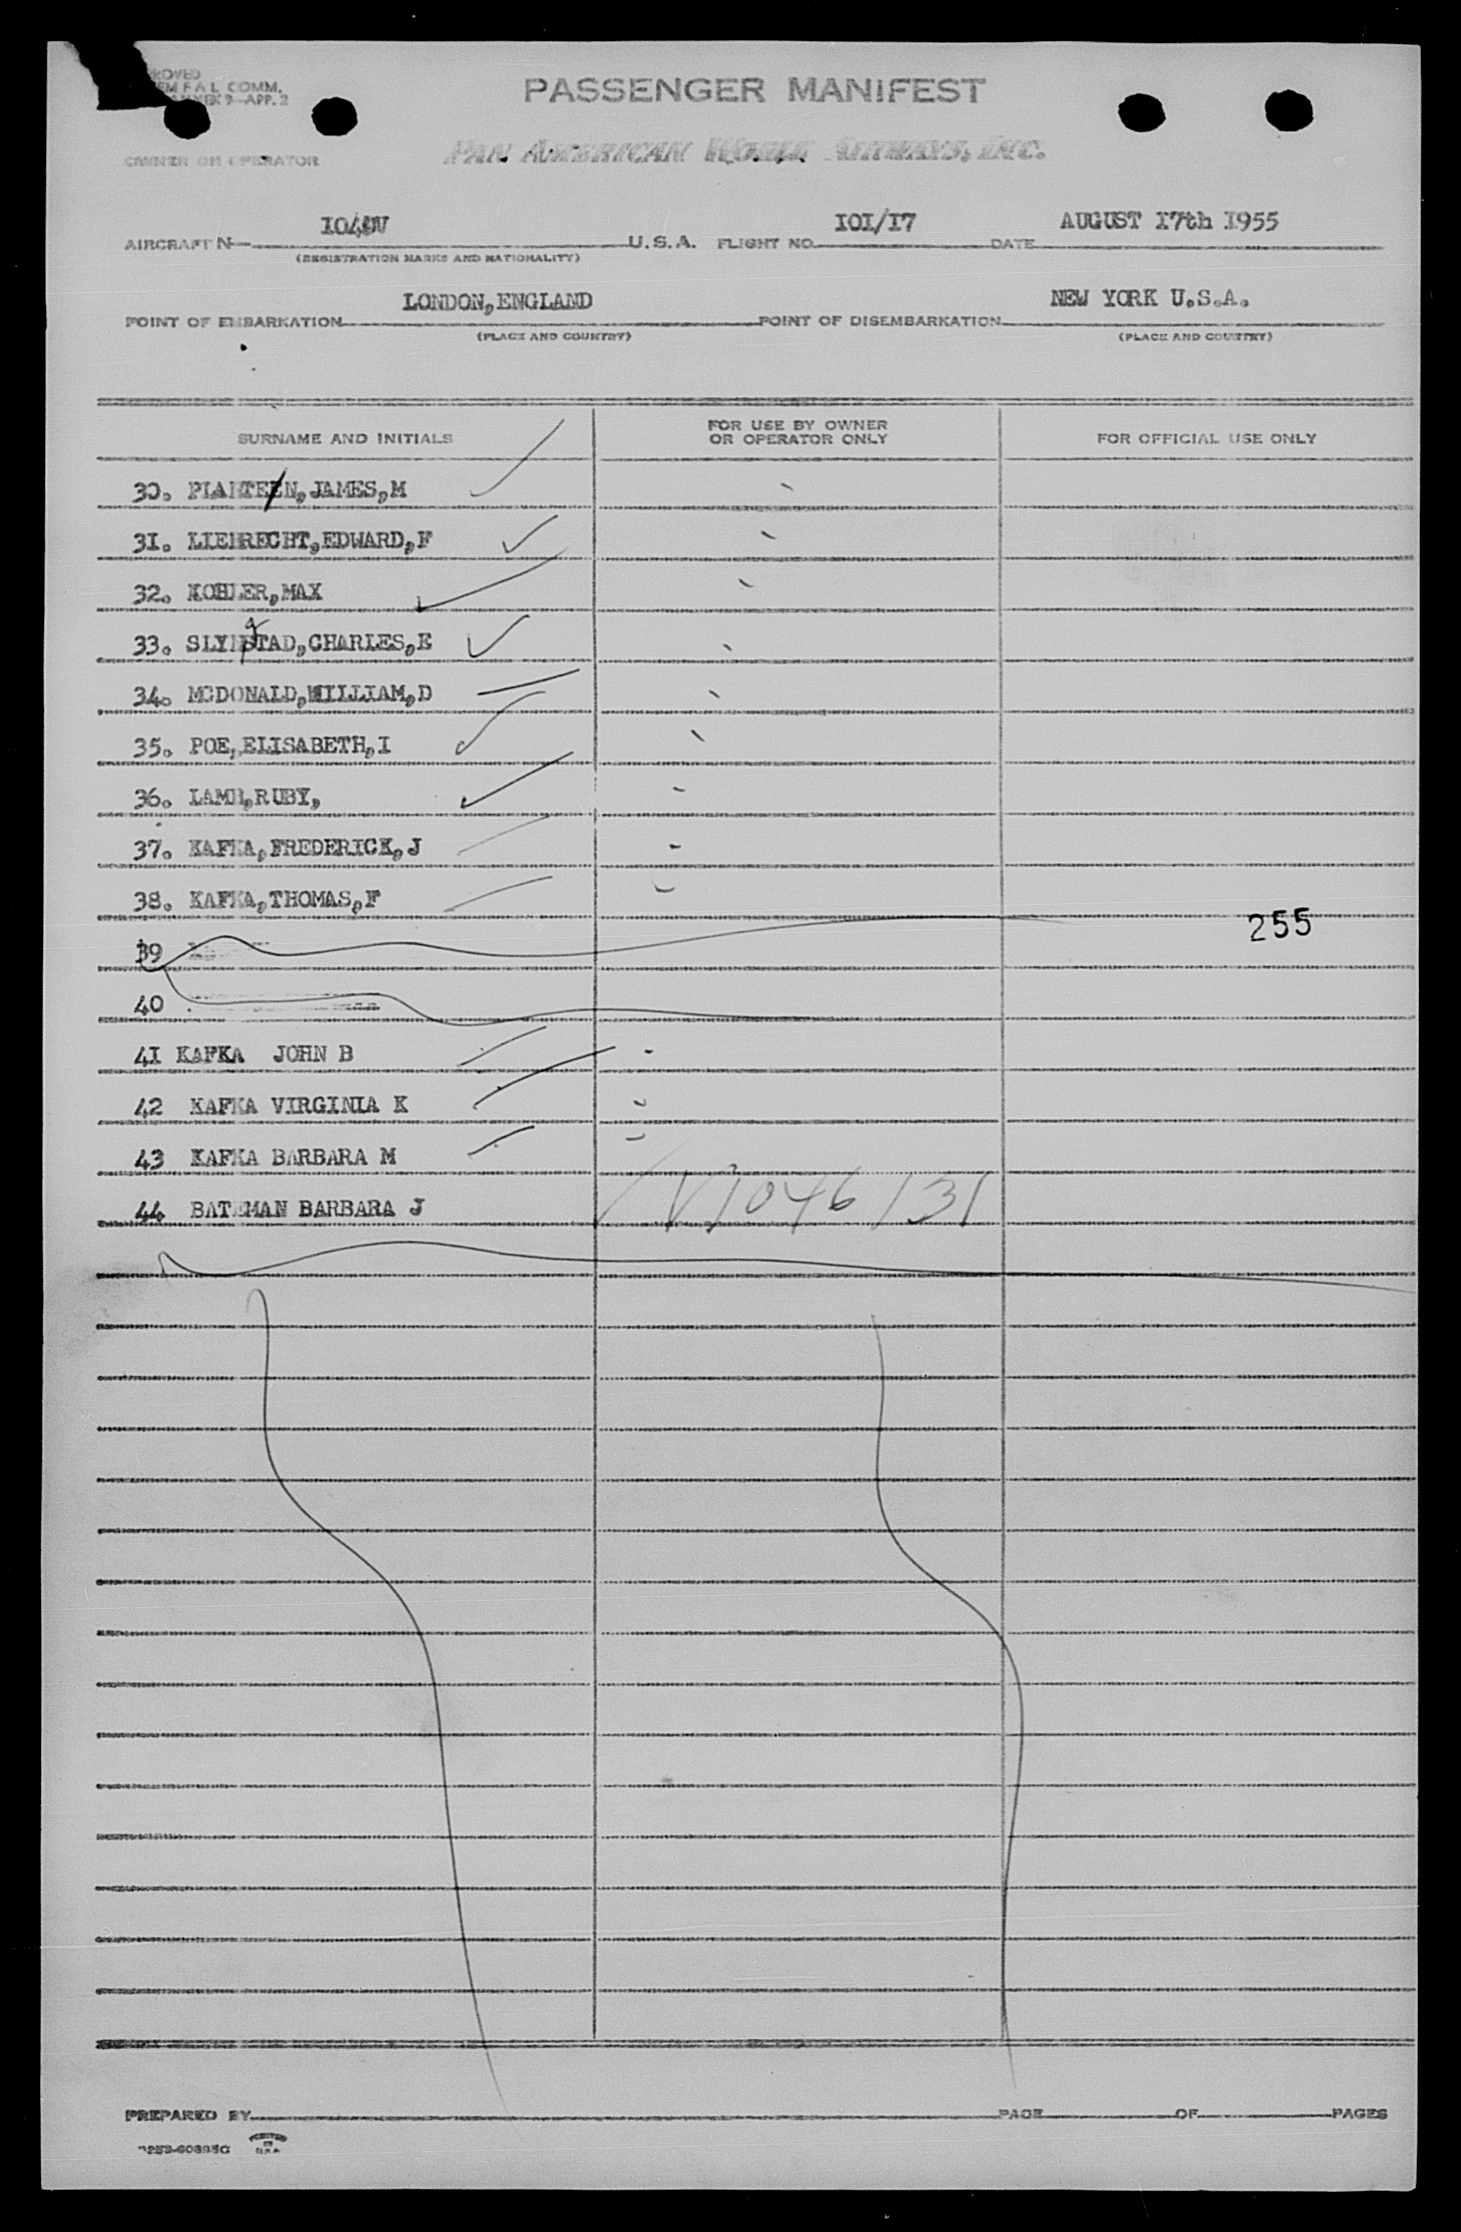 ROVED
EM F A L COMM.
ANNEX 9—APP. 2
PASSENGER MANIFEST
OWNER OR OPERATOR
PAN AMERICAN WORLD AIRWAYS, INC.
AIRCRAFT N U.S.A. FLIGHT NO. 101/17 DATE AUGUST 17th 1955
(REGISTRATION MARKS AND NATIONALITY)
POINT OF EMBARKATION LONDON, ENGLAND POINT OF DISEMBARKATION NEW YORK U.S.A.
(PLACE AND COUNTRY) (PLACE AND COUNTRY)
SURNAME AND INITIALS
FOR USE BY OWNER
OR OPERATOR ONLY
FOR OFFICIAL USE ONLY
30. JAMES, M
31. LIEBRECHT, EDWARD, F
32. KOHLER, MAX
33. CHARLES, E
34. MCDONALD, WILLIAM, D
35. POE, ELISABETH, I
36. LAMB, RUBY,
37. KAFKA, FREDERICK, J
38. KAFKA, THOMAS, F
255
39
40
41 KAFKA JOHN B
42 KAFKA VIRGINIA K
43 KAFKA BARBARA M
44 BATEMAN BARBARA J V1046131
PREPARED BY PAGE OF PAGES
PRINTED
IN
U.S.A.